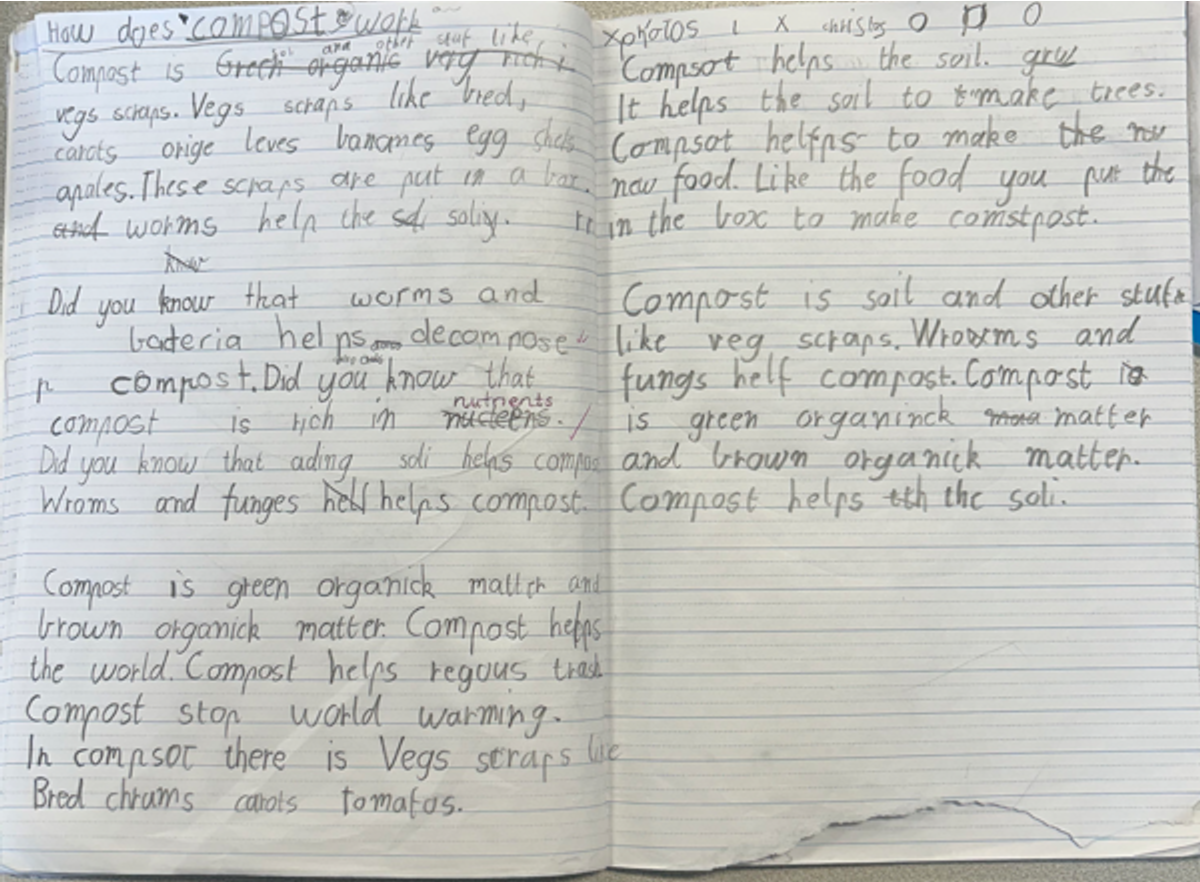 How does compost work
Compost is soil and other stuf like
vegs scraps. Vegs scraps like bred,
carots orige leves bananes egg shels
apales. These scraps are put in a box.
worms help the soliy.
Did you know that worms and
bateria helps decompose
compost. Did you know that
nutrients
compost is rich in nucteens.
Did you know that ading soli helps compos
Wroms and funges helps compost.
Compost is green organick matter and
brown organick matter. Compost helps
the world. Compost helps regous trash
Compost stop world warming.
In compsot there is Vegs scraps like
Bred chrums carots tomatos.
i x christos O O
Compsot helps the soil.
It helps the soil to make trees.
Compsot helps to make the
new food. Like the food you put the
in the box to make comstpost.
Compost is soil and other stuf
like veg scraps. Wroxms and
fungs helf compost. Compost
is green organinck matter
and brown organick matter.
Compost helps the soli.